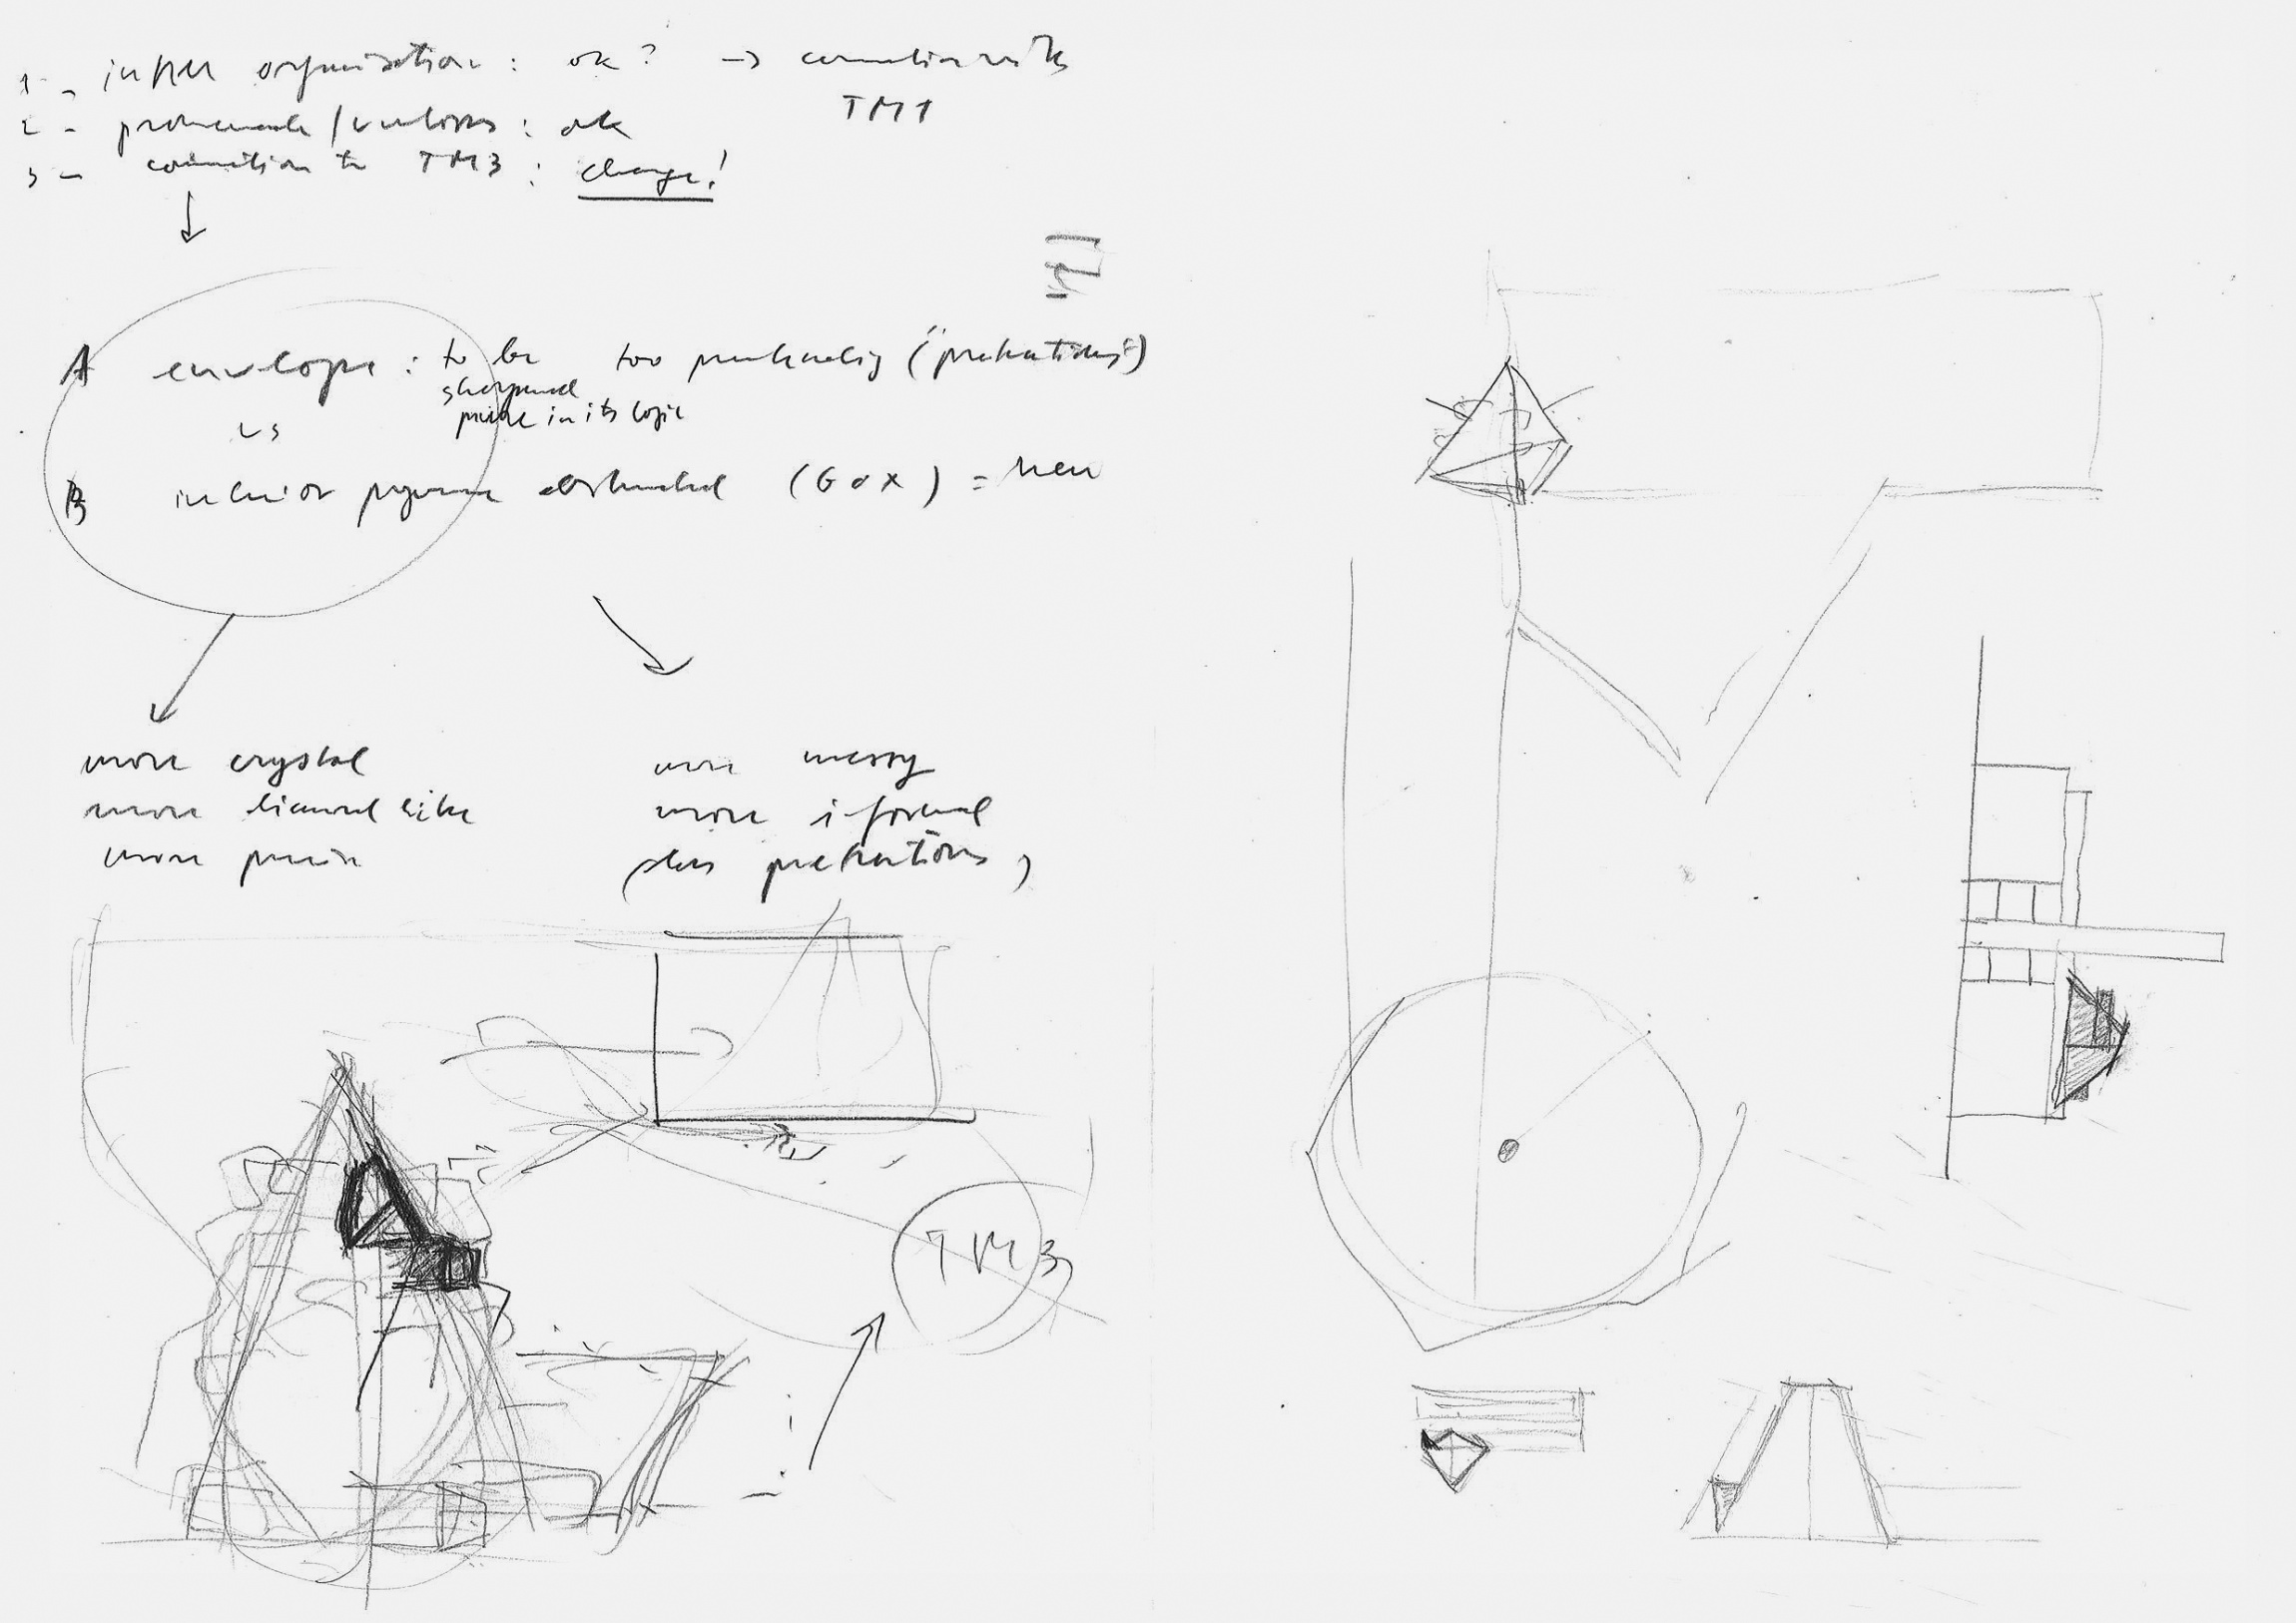 1 - inner organisation : ok ? → connection with
TM1
2 - promenade / : ok
3 - connection to TM3 : change!
A envelope : to be too
sharpened
precise in its logic
vs
B interior (BOX) = new
more crystal
more diamond like
more precise
more messy
more informal
(less pretentious)
TM3